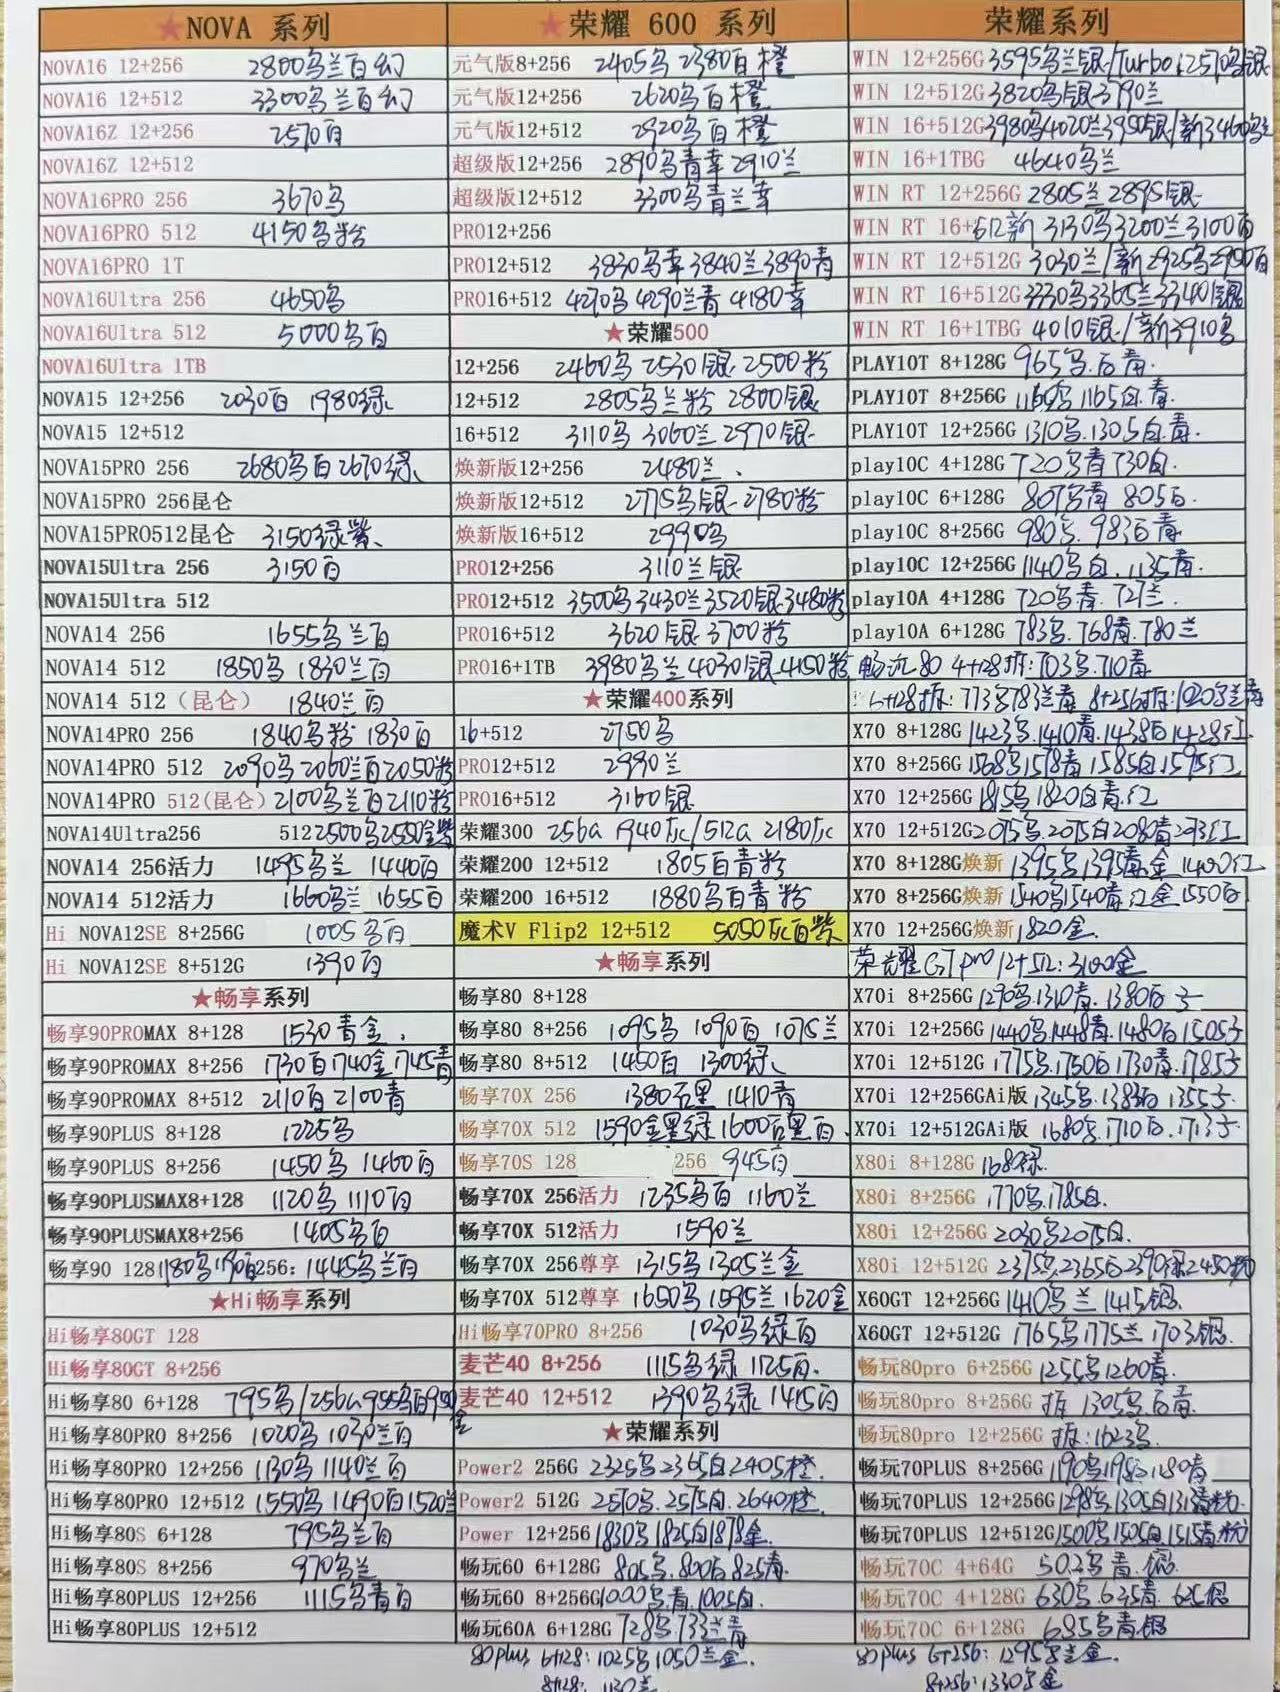 ★NOVA 系列
NOVA16 12+256 2800乌兰白幻
NOVA16 12+512 3300乌兰白幻
NOVA16Z 12+256 2570白
NOVA16Z 12+512
NOVA16PRO 256 3670乌
NOVA16PRO 512 4150乌粉
NOVA16PRO 1T
NOVA16Ultra 256 4650乌
NOVA16Ultra 512 5000乌白
NOVA16Ultra 1TB
NOVA15 12+256 2030白 1980绿
NOVA15 12+512
NOVA15PRO 256 2680乌白2670绿
NOVA15PRO 256昆仑
NOVA15PRO512昆仑 3150绿紫
NOVA15Ultra 256 3150白
NOVA15Ultra 512
NOVA14 256 1655乌兰白
NOVA14 512 1850乌 1830兰白
NOVA14 512（昆仑） 1840兰白
NOVA14PRO 256 1840乌粉 1830白
NOVA14PRO 512 2090乌2060兰白2050粉
NOVA14PRO 512(昆仑) 2100乌兰白2110粉
NOVA14Ultra256 512 2500乌2550金紫
NOVA14 256活力 1495乌兰 1440白
NOVA14 512活力 1660乌兰 1655白
Hi NOVA12SE 8+256G 1005乌白
Hi NOVA12SE 8+512G 1390白
★畅享系列
畅享90PROMAX 8+128 1530青金
畅享90PROMAX 8+256 1730白1740金1745青
畅享90PROMAX 8+512 2110白2100青
畅享90PLUS 8+128 1225乌
畅享90PLUS 8+256 1450乌 1460白
畅享90PLUSMAX8+128 1120乌 1110白
畅享90PLUSMAX8+256 1405乌白
畅享90 128 1180乌1190白256: 1445乌兰白
★Hi畅享系列
Hi畅享80GT 128
Hi畅享80GT 8+256
Hi畅享80 6+128 795乌/256G955乌白950金
Hi畅享80PRO 8+256 1020乌 1030兰白
Hi畅享80PRO 12+256 1130乌 1140兰白
Hi畅享80PRO 12+512 1550乌 1490白1520兰
Hi畅享80S 6+128 795乌兰白
Hi畅享80S 8+256 970乌兰
Hi畅享80PLUS 12+256 1115乌青白
Hi畅享80PLUS 12+512
★荣耀 600 系列
元气版8+256 2405乌 2380白橙
元气版12+256 2620乌白橙
元气版12+512 2920乌白橙
超级版12+256 2890乌青幸 2910兰
超级版12+512 3300乌青兰幸
PRO12+256
PRO12+512 3830乌幸 3840兰3890青
PRO16+512 4270乌 4290兰青 4180幸
★荣耀500
12+256 2460乌 2530银 2500粉
12+512 2805乌兰粉 2800银
16+512 3110乌 3060兰 2970银
焕新版12+256 2480兰
焕新版12+512 2775乌银 2780粉
焕新版16+512 2990乌
PRO12+256 3110兰银
PRO12+512 3500乌3430兰3520银3480粉
PRO16+512 3620银 3700粉
PRO16+1TB 3980乌兰 4030银4150粉
★荣耀400系列
16+512 2750乌
PRO12+512 2990兰
PRO16+512 3160银
荣耀300 256G 1940灰/512G 2180灰
荣耀200 12+512 1805白青粉
荣耀200 16+512 1880乌白青粉
魔术V Flip2 12+512 5050灰白紫
★畅享系列
畅享80 8+128
畅享80 8+256 1095乌 1090白 1075兰
畅享80 8+512 1450白 1300绿
畅享70X 256 1380云黑 1410青
畅享70X 512 1590金黑绿 1600云黑白
畅享70S 128 256 945白
畅享70X 256活力 1235乌白 1160兰
畅享70X 512活力 1590兰
畅享70X 256尊享 1315乌1305兰金
畅享70X 512尊享 1650乌 1595兰 1620金
Hi畅享70PRO 8+256 1030乌绿白
麦芒40 8+256 1115乌绿 1125白
麦芒40 12+512 1390乌绿 1415白
★荣耀系列
Power2 256G 2325乌2365白2405橙
Power2 512G 2570乌.2575白.2640橙
Power 12+256 1830乌1825白1878金
畅玩60 6+128G 805乌.800白825青
畅玩60 8+256G 1000乌青.1005白
畅玩60A 6+128G 728乌.733兰青
80plus 6+128: 1025乌1050兰金.
8+128: 1130兰
荣耀系列
WIN 12+256G 3595乌兰银/Turbo:2570乌银
WIN 12+512G 3820乌银3790兰
WIN 16+512G 3980乌4020兰3950银/新3460乌兰
WIN 16+1TBG 4640乌兰
WIN RT 12+256G 2805兰 2895银
WIN RT 16+512新 3130乌3200兰3100白
WIN RT 12+512G 3030兰/新2925乌2950白
WIN RT 16+512G 3330乌3365兰3340银
WIN RT 16+1TBG 4010银/新3910乌
PLAY10T 8+128G 965乌.白青.
PLAY10T 8+256G 1160乌1165白.青.
PLAY10T 12+256G 1310乌.1305白.青.
play10C 4+128G 720乌青730白.
play10C 6+128G 807乌青 805白.
play10C 8+256G 980乌.983白青
play10C 12+256G 1140乌白.1135青.
play10A 4+128G 720乌青.727兰.
play10A 6+128G 783乌.768青.780兰
畅玩80 4+128拆:703乌.710青
6+128拆:773乌783兰青 8+256拆:1020乌兰青
X70 8+128G 1423乌.1410青.1438白1428红
X70 8+256G 1568乌1578青 1585白.1595红
X70 12+256G 1815乌1820白青.红
X70 12+512G 2075乌.2075白2080青2073红
X70 8+128G焕新 1395乌1395青.金 1400红
X70 8+256G焕新 1540乌1540青红金1550白
X70 12+256G焕新 1820金.
荣耀GTpro 12+512:3100金
X70i 8+256G 1290乌.1310青.1380白子
X70i 12+256G 1440乌1448青.1480白1505子
X70i 12+512G 1775乌.1750白1730青.1785子
X70i 12+256GAi版 1345乌.1383白1355子
X70i 12+512GAi版 1680乌.1710白.1713子
X80i 8+128G 1680绿
X80i 8+256G 1770乌.1785白.
X80i 12+256G 2030乌2075白.
X80i 12+512G 2375乌.2365白2390绿2450粉
X60GT 12+256G 1410乌兰1415银.
X60GT 12+512G 1765乌1775兰1703银.
畅玩80pro 6+256G 1255乌1260青.
畅玩80pro 8+256G 拆1305乌白青.
畅玩80pro 12+256G 拆:1623乌.
畅玩70PLUS 8+256G 1190乌1195白1180青
畅玩70PLUS 12+256G 1298乌1305白1313青粉.
畅玩70PLUS 12+512G 1500乌1505白1515青粉
畅玩70C 4+64G 502乌青.银.
畅玩70C 4+128G 630乌.635青.625银
畅玩70C 6+128G 685乌青银
80plus 6+256: 1295乌兰金.
8+256:1330乌金